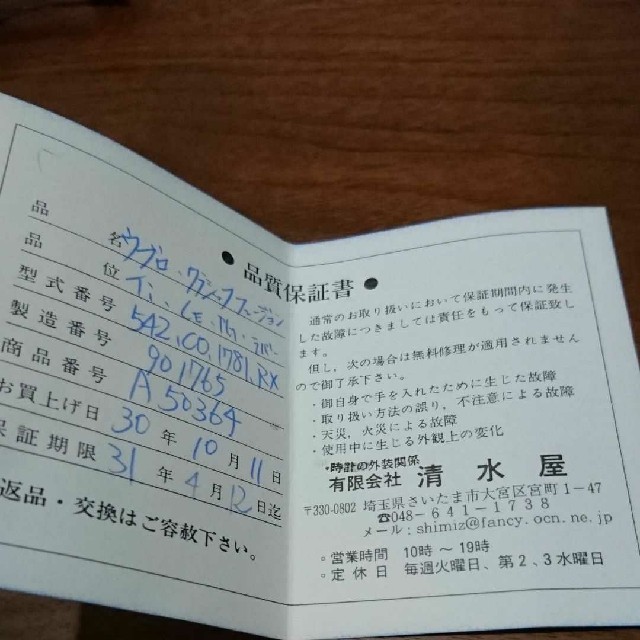 ● 品質保証書 ●
品名 ウブロ・クラシックフュージョン
品位 Ti.
型式番号 542.CO.1781.RX
製造番号 901765
商品番号 A50364
お買上げ日 30年10月11日
保証期限 31年4月12日迄
返品・交換はご容赦下さい。
通常のお取り扱いにおいて保証期間内に発生
した故障につきましては責任をもって保証致し
ます。
但し、次の場合は無料修理が適用されません
ので御了承下さい。
・御自身で手を入れたために生じた故障
・取り扱い方法の誤り、不注意による故障
・天災、火災による故障
・使用中に生じる外観上の変化
・時計の外装関係
有限会社 清水屋
〒330-0802 埼玉県さいたま市大宮区宮町1-47
☎048-641-1738
メール:shimiz@fancy.ocn.ne.jp
○営業時間 10時~19時
○定休日 毎週火曜日、第2、3水曜日